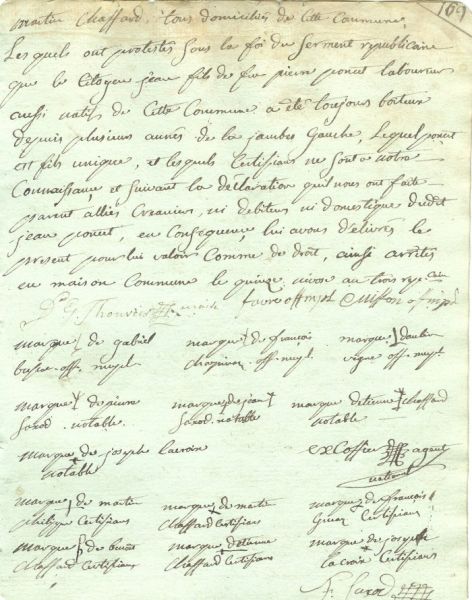 169
martin Chaffard, tous domiciliés de Cette Commune,
Les quels ont protestés sous la foi du serment republicain
que le Citoyen jean fils de feu pierre poncet laboureur
aussi natif de Cette Commune a été toujours boiteux
depuis plusieurs années de la jambes Gauche, Lequel poncet
est fils unique, et lesquels Certifians ne sont a notre
Connaissance, et suivant la déclaration qu'il nous ont faite
parent alliés Creanciers, ni debiteurs ni domestique dudit
jean poncet, en Consequence, lui avons d'élivrés le
present pour lui valoir Comme de droit, ainsi arrêtés
en maison Commune le quinze nivose au trois rep.caine
Thouvier maire favre off mpl Cuisson of mpl
marque de gabriel
off. mupl
marque de françois
off. mupl
marque daubin
vigne off. mupl
marque de pierre
notable
marque de jean
notable
marque detienne Chaffard
notable
marque de joseph lacroix
notable
excoffier agent
national
marque de martin
philippe Certifians
marque de martin
Chaffard Certifian
marque de françois
Certifians
marque de
Chaffard Certifians
marque detienne
Chaffard Certifians
marque de joseph
la croix Certifians